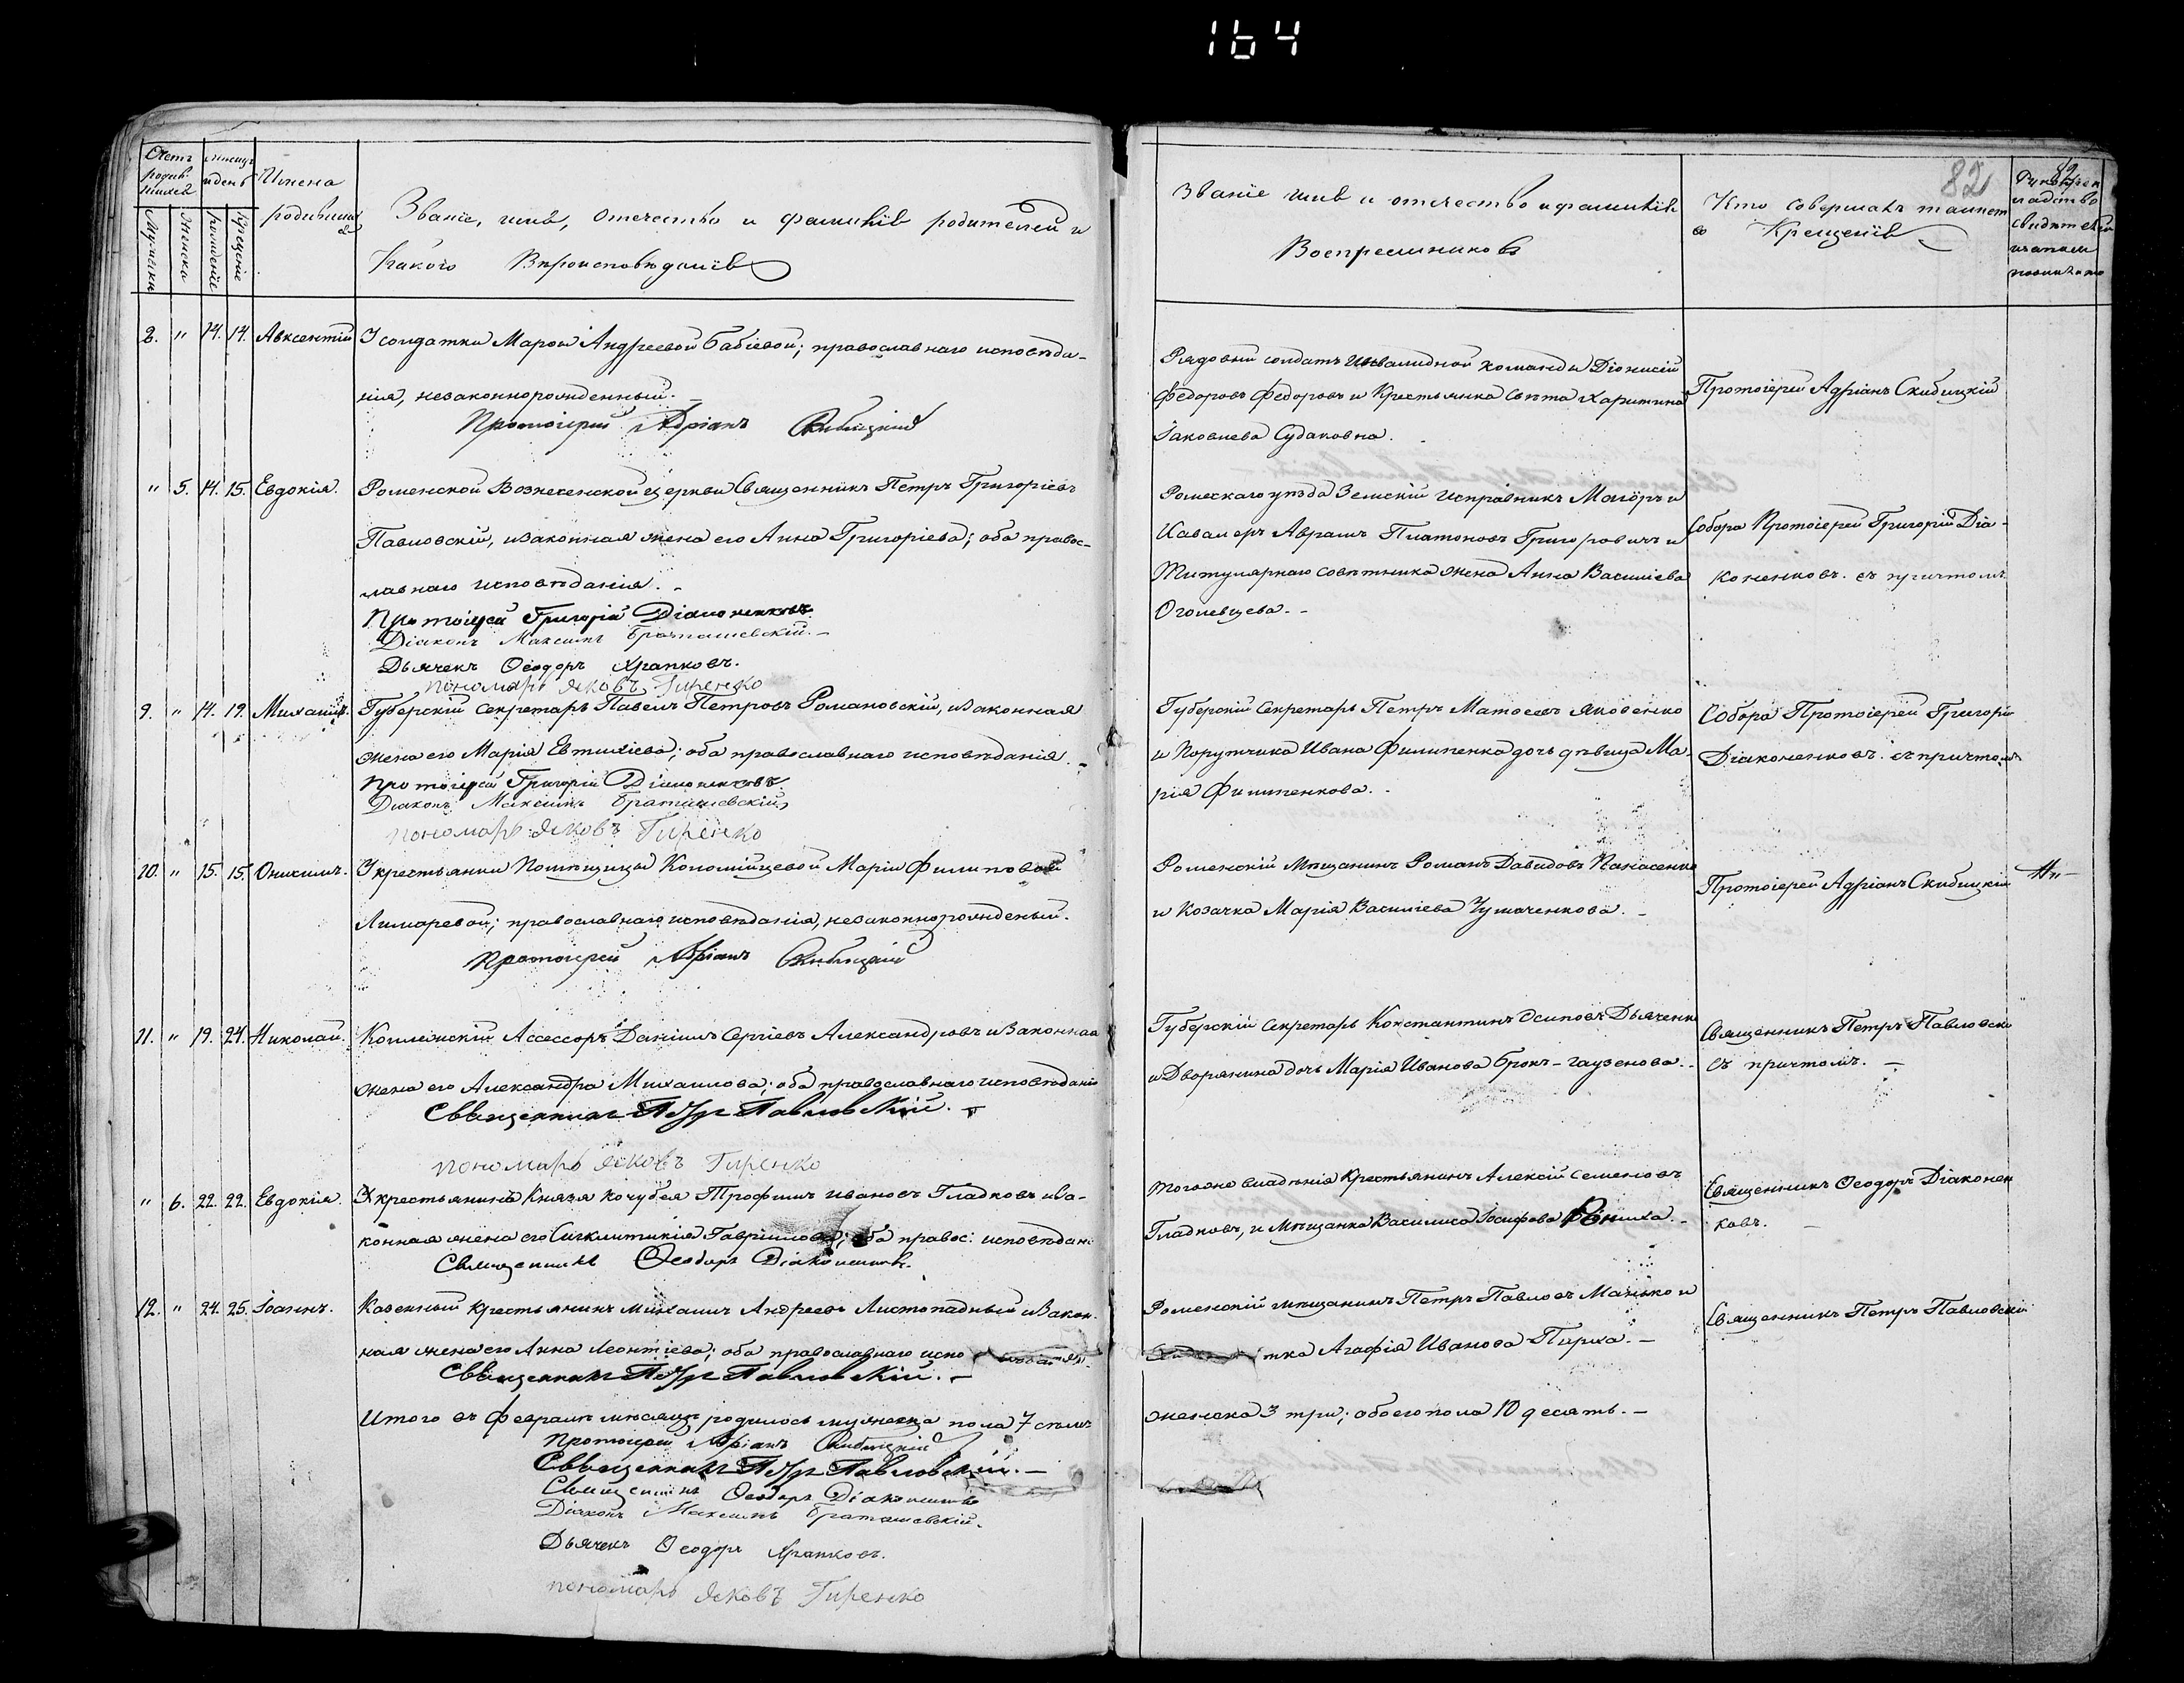 164
82
Счетъ родив- шихся
Мѣсяцъ и день
Имена родившихся
Званіе, имя, отечество и фамилія родителей и
Какого Вѣроисповѣданія
Званіе имя и отечество и фамилія
Воспреемниковъ
Кто совершалъ таинст
во Крещенія
Мужеска
Женска
Рожденіе
Крещеніе
8. " 14. 14. Авксентій
У солдатки Марфы Андреевой Бабіевой; православнаго исповѣда-
нія, незаконнорожденный.
Протоіерей Адріанъ Скибицкій
Рядовый солдатъ Инвалидной команды Діонисій
Федоровъ Федоровъ и Крестьянка Свѣта Харитина
Іаковлева Судаковна.
Протоіерей Адріанъ Скибицкій
" 5. 14. 15. Евдокія.
Роменской Вознесенской церкви Священникъ Петръ Григоріевъ
Павловскій, и законная жена его Анна Григоріева; оба правос-
лавнаго исповѣданія.
Протоіерей Григорій Діаконенковъ
Діаконъ Максимъ Браташевскій.
Дьячекъ Ѳеодоръ Храпковъ.
пономарь Яковъ Гиренко
Роменскаго уѣзда Земскій исправникъ Маіоръ и
Кавалеръ Аврамъ Платоновъ Григоровичъ и
Титулярнаго совѣтника жена Анна Василіева
Оголевцева.
Собора Протоіерей Григорій Діа-
коненковъ. съ причтомъ
9. " 14. 19. Михаилъ.
Губерскій Секретарь Павелъ Петровъ Романовскій, и законная
жена его Марія Евтихіева; оба православнаго исповѣданія.
Протоіерей Григорій Діаконенковъ.
Діаконъ Максимъ Браташевскій
пономарь Яковъ Гиренко
Губерскій Секретарь Петръ Матѳеевъ Яковенко
и Порутчика Ивана Филипенка дочь дѣвица Ма-
рія Филипенкова.
Собора Протоіерей Григорій
Діаконенковъ. съ причтомъ
10. " 15. 15. Онисимъ.
У крестьянки Помѣщицы Коломійцевой Маріи Филиповой
Лимаревой; православнаго исповѣданія, незаконнорожденый.
Протоіерей Адріанъ Скибицкій
Роменскій Мѣщанинъ Романъ Давидовъ Панасенко
и Козачка Марія Василіева Чумаченкова.
Протоіерей Адріанъ Скибицкій
11. " 19. 24. Николай.
Коллежскій Ассессоръ Даніилъ Сергіевъ Александровъ и Законная
жена его Александра Михаилова; оба православнаго исповѣданія
Священникъ Петръ Павловскій.
пономарь Яковъ Гиренко
Губерскій Секретарь Константинъ Осиповъ Дьяченко
и Дворянина дочь Марія Иванова Брокъ-гаузенова.
Священникъ Петръ Павловскі
съ причтомъ.
" 6. 22. 22. Евдокія.
У крестьянина Князя Кочубея Трофимъ Ивановъ Гладковъ и За-
конная жена его Сигклитикія Гавріилова; оба правос: исповѣдан:
Священникъ Ѳеодоръ Діаконенковъ.
Тогоже владѣнія Крестьянинъ Алексій Семеновъ
Гладковъ, и Мѣщанка Василиса Іосифова
Священникъ Ѳеодоръ Діаконен
ковъ.
12. " 24. 25. Іоаннъ.
Казенный Крестьянинъ Михаилъ Андреевъ Листопадный и Закон-
ная жена его Анна Леонтіева; оба православнаго испо
Священникъ Петръ Павловскій.
Роменскій мѣщанинъ Петръ Павловъ Манько и
тка Агафія Иванова Пирха.
Священникъ Петръ Павловскій
Итого въ Февралѣ мѣсяцѣ родилось мужеска пола 7 семь
женска 3 три; обоего пола 10 десять.
Протоіерей Адріанъ Скибицкій
Священникъ Петръ Павловскій.
Священникъ Ѳеодоръ Діаконенковъ
Діаконъ Максимъ Браташевскій.
Дьячекъ Ѳеодоръ Храпковъ.
пономарь Яковъ Гиренко